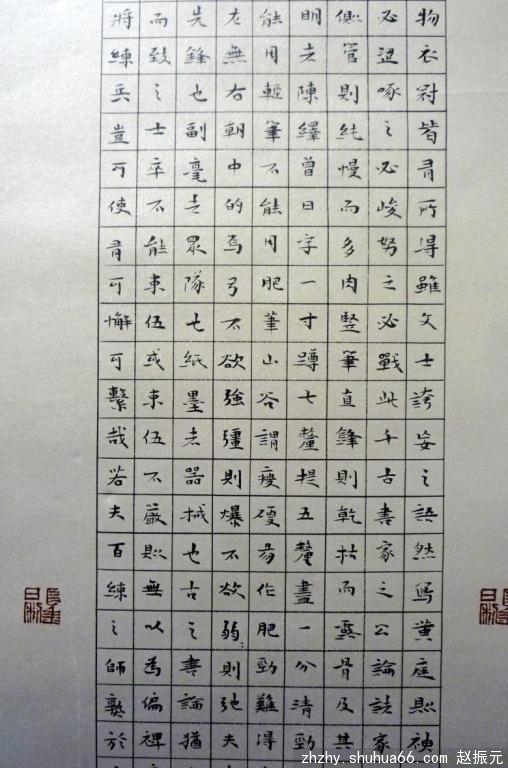 物衣冠皆有所得雖文士誇妄之語然寫黃庭則
必啄之必峻努之必戰此千古書家之公論諸家
側管則純慢而多肉豎筆直鋒則乾枯而露骨及其
明者陳繹曾曰字一寸蹲七釐提五釐盡一分清勁
能用輕筆不能用肥筆山谷謂瘦硬易作肥勁難得
左無右朝中的為弓不欲強彊則爆不欲弱則弛夫
先鋒也副毫者眾隊也紙墨者器械也古之書論猶
而致之士卒不能束伍或束伍不嚴則無以為偏裨
將練兵豈可使有可懈可繫哉若夫百練之師熟於
zhzhy.shuhua66.com 赵振元